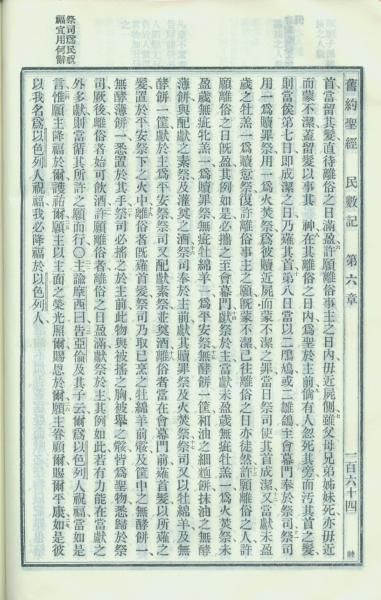 舊約聖經 民數記 第六章 一百六十四
首當留其髮直待離俗之日滿盈許願離俗事主之日內毋近屍側雖父母兄弟姊妹死亦毋近
而蒙不潔蓋留髮以事其 神在其離俗之日內爲聖於主前倘有人忽死其旁而汚其首之髮
則當俟第七日即成潔之日乃薙其首第八日當以二鳲鳩或二雛鴿至會幕門奉於祭司祭司
用一爲贖罪祭用一爲火焚祭爲彼贖近屍而蒙不潔之罪當日祭司使其首成潔又當獻未盈
歲之牡羔一爲贖愆祭復許離俗事主之願既蒙不潔已往離俗之日亦徒然許願離俗之人許
願離俗之日既盈其例如是必攜之至會幕門獻祭於主當獻未盈歲無疵牡羔一爲火焚祭未
盈歲無疵牝羔一爲贖罪祭無疵牡綿羊一爲平安祭無酵餅一筐和油之細麵餅抹油之無酵
薄餅與配獻之素祭及灌奠之酒祭司奉於主前獻其贖罪祭及火焚祭祭司又以牡綿羊及無
酵餅一筐獻於主爲平安祭祭司又配獻素祭並奠酒離俗者當在會幕門前薙首髮以所薙之
髮置於平安祭下之火中離俗者既薙首髮祭司乃取已烹之牡綿羊前骹及筐中之無酵餅一
無酵薄餅一悉置於其手祭司必搖之於主前此物與被搖之胸被舉之骹皆爲聖物悉歸於祭
司厥後離俗者始可飲酒許願離俗者離俗之日盈滿獻祭於主其例如此若有力能在當獻之
外多獻則當循其所許之願而行〇主諭摩西曰告亞倫及其子云爾爲以色列人祝福當如是
言惟願主降福於爾護祐爾願主以主面之榮光照爾賜恩於爾願主眷顧爾賜爾平康如是彼
以我名爲以色列人祝福我必降福於以色列人
祭司爲民祝
福宜用何辭